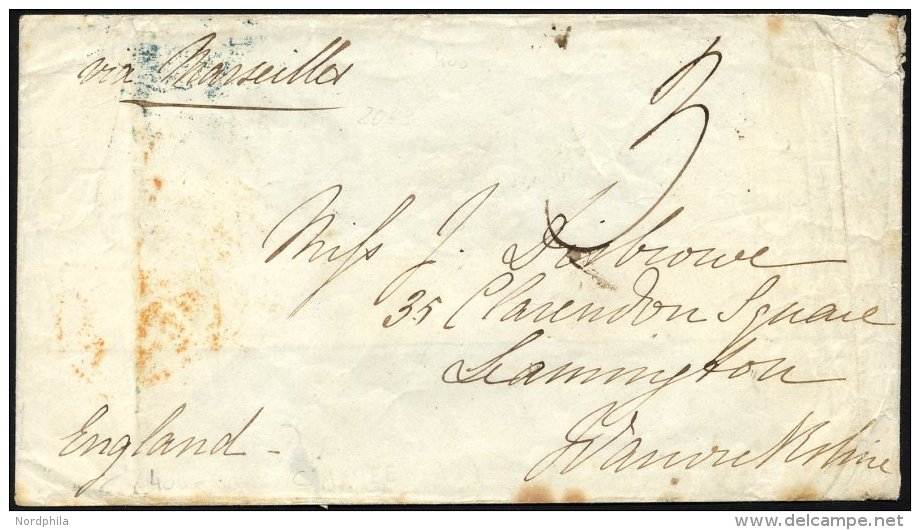 via Marseilles
3
Miss J. Disbrowe
35 Clarendon Square
Leamington
Warwickshire
England -
Nordphila
delcampe.net